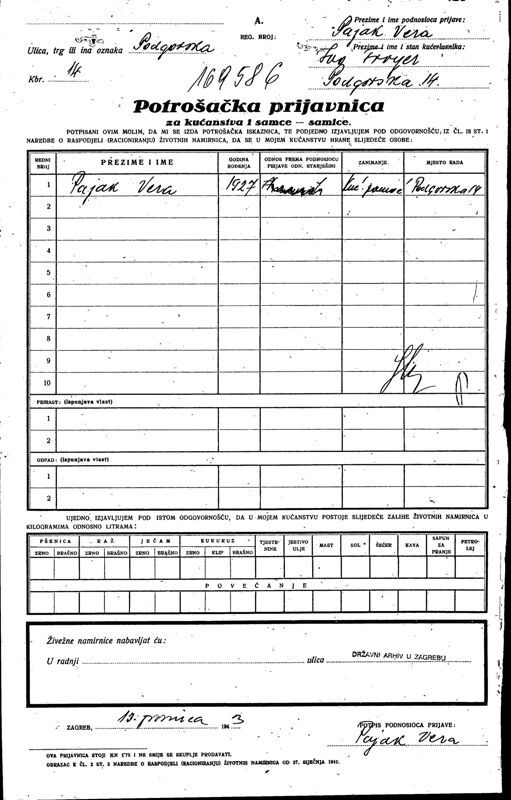 A.
REG. BROJ:
Prezime i ime podnosioca prijave:
Pajak Vera
Ulica, trg ili ina oznaka Podgorska
Prezime i ime i stan kućevlasnika:
Kbr. 14
169586
Podgorska 14.
Potrošačka prijavnica
za kućanstva i samce — samice.
POTPISANI OVIM MOLIM, DA MI SE IZDA POTROŠAČKA ISKAZNICA, TE PODJEDNO IZJAVLJUJEM POD ODGOVORNOŠĆU, IZ ČL. 18 ST. 1
NAREDBE O RASPODJELI (RACIONIRANJU) ŽIVOTNIH NAMIRNICA, DA SE U MOJEM KUĆANSTVU HRANE SLIJEDEĆE OSOBE:
REDNI BROJ PREZIME I IME GODINA ROĐENJA ODNOS PREMA PODNOSIOCU PRIJAVE ODN. STARJEŠINI ZANIMANJE MJESTO RADA
1 Pajak Vera 1927 Kuć. pomoć Podgorska 14
2
3
4
5
6
7
8
9
10
PRIRAST: (ispunjava vlast)
1
2
OTPAD: (ispunjava vlast)
1
2
UJEDNO IZJAVLJUJEM POD ISTOM ODGOVORNOŠĆU, DA U MOJEM KUĆANSTVU POSTOJE SLIJEDEĆE ZALIHE ŽIVOTNIH NAMIRNICA U
KILOGRAMIMA ODNOSNO LITRAMA:
PŠENICA RAŽ JEČAM KUKURUZ TJESTENINE JESTIVO ULJE MAST SOL ŠEĆER KAVA SAPUN ZA PRANJE PETROLEJ
ZRNO BRAŠNO ZRNO BRAŠNO ZRNO BRAŠNO ZRNO KLIP BRAŠNO
POVEĆANJE
Živežne namirnice nabavljat ću:
U radnji ulica DRŽAVNI ARHIV U ZAGREBU
ZAGREB, 194 3
POTPIS PODNOSIOCA PRIJAVE:
Pajak Vera
OVA PRIJAVNICA STOJI KN 1'75 I NE SMIJE SE SKUPLJE PRODAVATI.
OBRAZAC K ČL. 2 ST. 3 NAREDBE O RASPODJELI (RACIONIRANJU) ŽIVOTNIH NAMIRNICA OD 27. SIJEČNJA 1941.